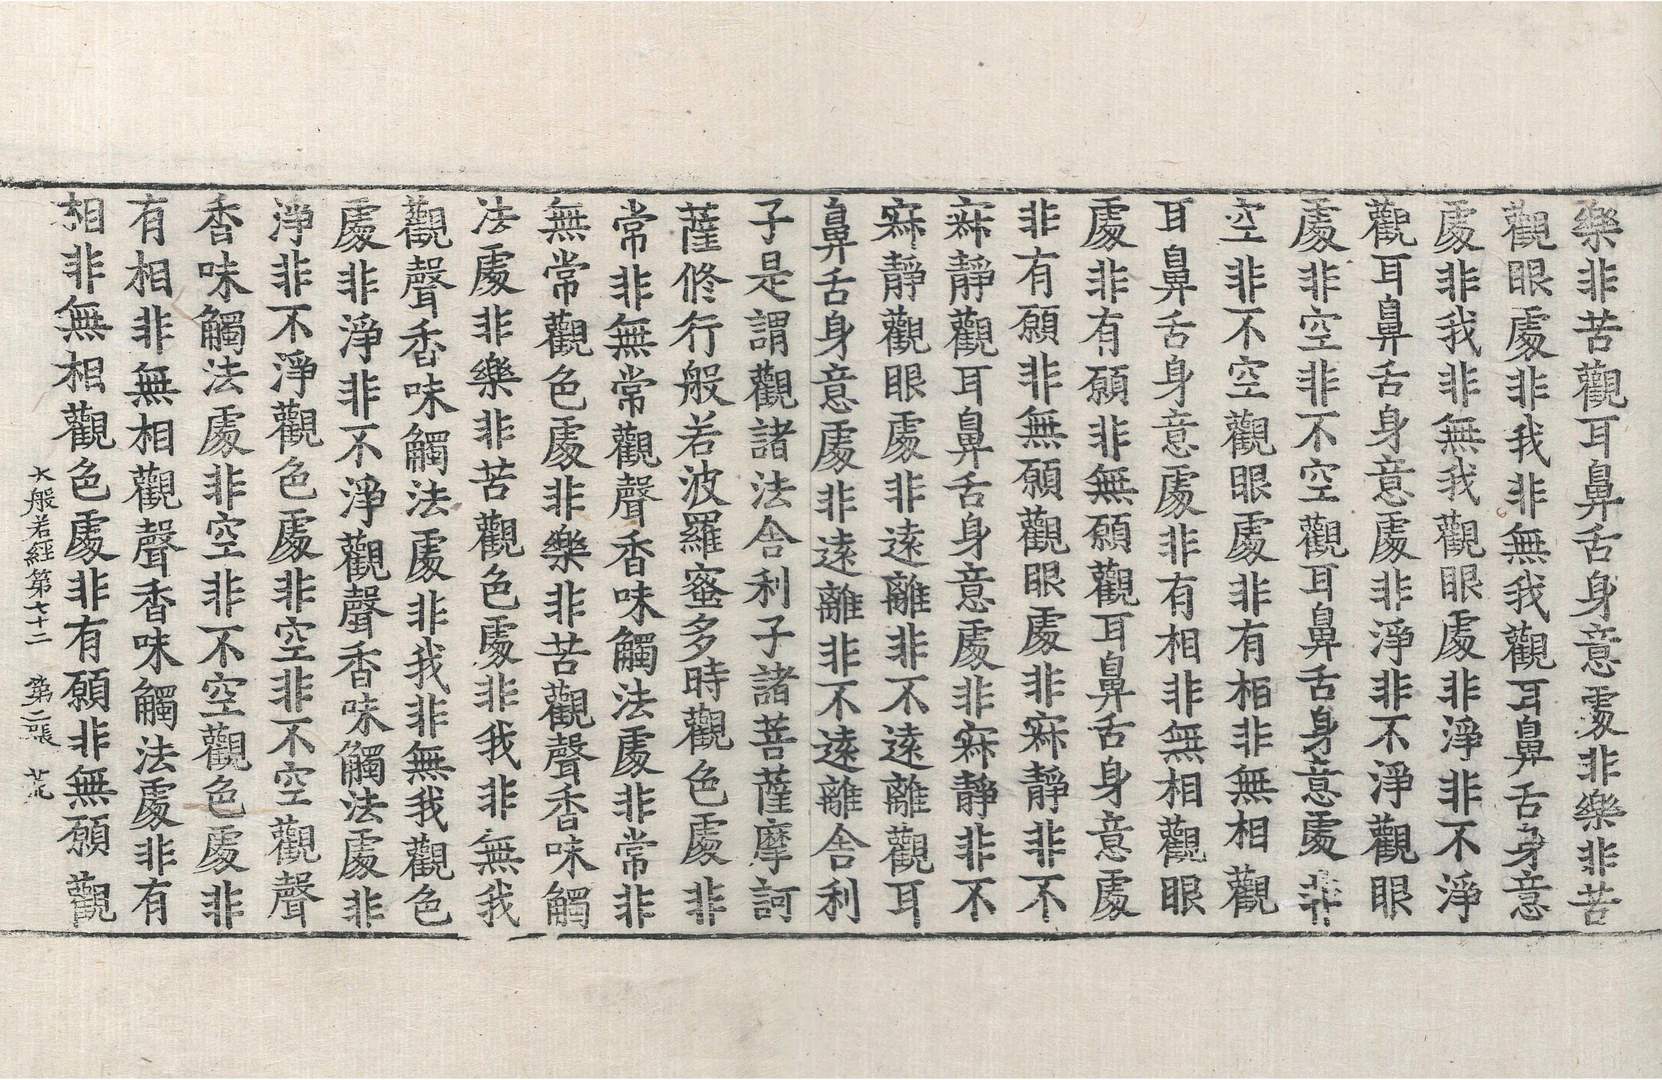 樂非苦觀耳鼻舌身意處非樂非苦
觀眼處非我非無我觀耳鼻舌身意
處非我非無我觀眼處非淨非不淨
觀耳鼻舌身意處非淨非不淨觀眼
處非空非不空觀耳鼻舌身意處非
空非不空觀眼處非有相非無相觀
耳鼻舌身意處非有相非無相觀眼
處非有願非無願觀耳鼻舌身意處
非有願非無願觀眼處非寂靜非不
寂靜觀耳鼻舌身意處非寂靜非不
寂靜觀眼處非遠離非不遠離觀耳
鼻舌身意處非遠離非不遠離舍利
子是謂觀諸法舍利子諸菩薩摩訶
薩修行般若波羅蜜多時觀色處非
常非無常觀聲香味觸法處非常非
無常觀色處非樂非苦觀聲香味觸
法處非樂非苦觀色處非我非無我
觀聲香味觸法處非我非無我觀色
處非淨非不淨觀聲香味觸法處非
淨非不淨觀色處非空非不空觀聲
香味觸法處非空非不空觀色處非
有相非無相觀聲香味觸法處非有
相非無相觀色處非有願非無願觀
大般若經第七十二 第二張 荒